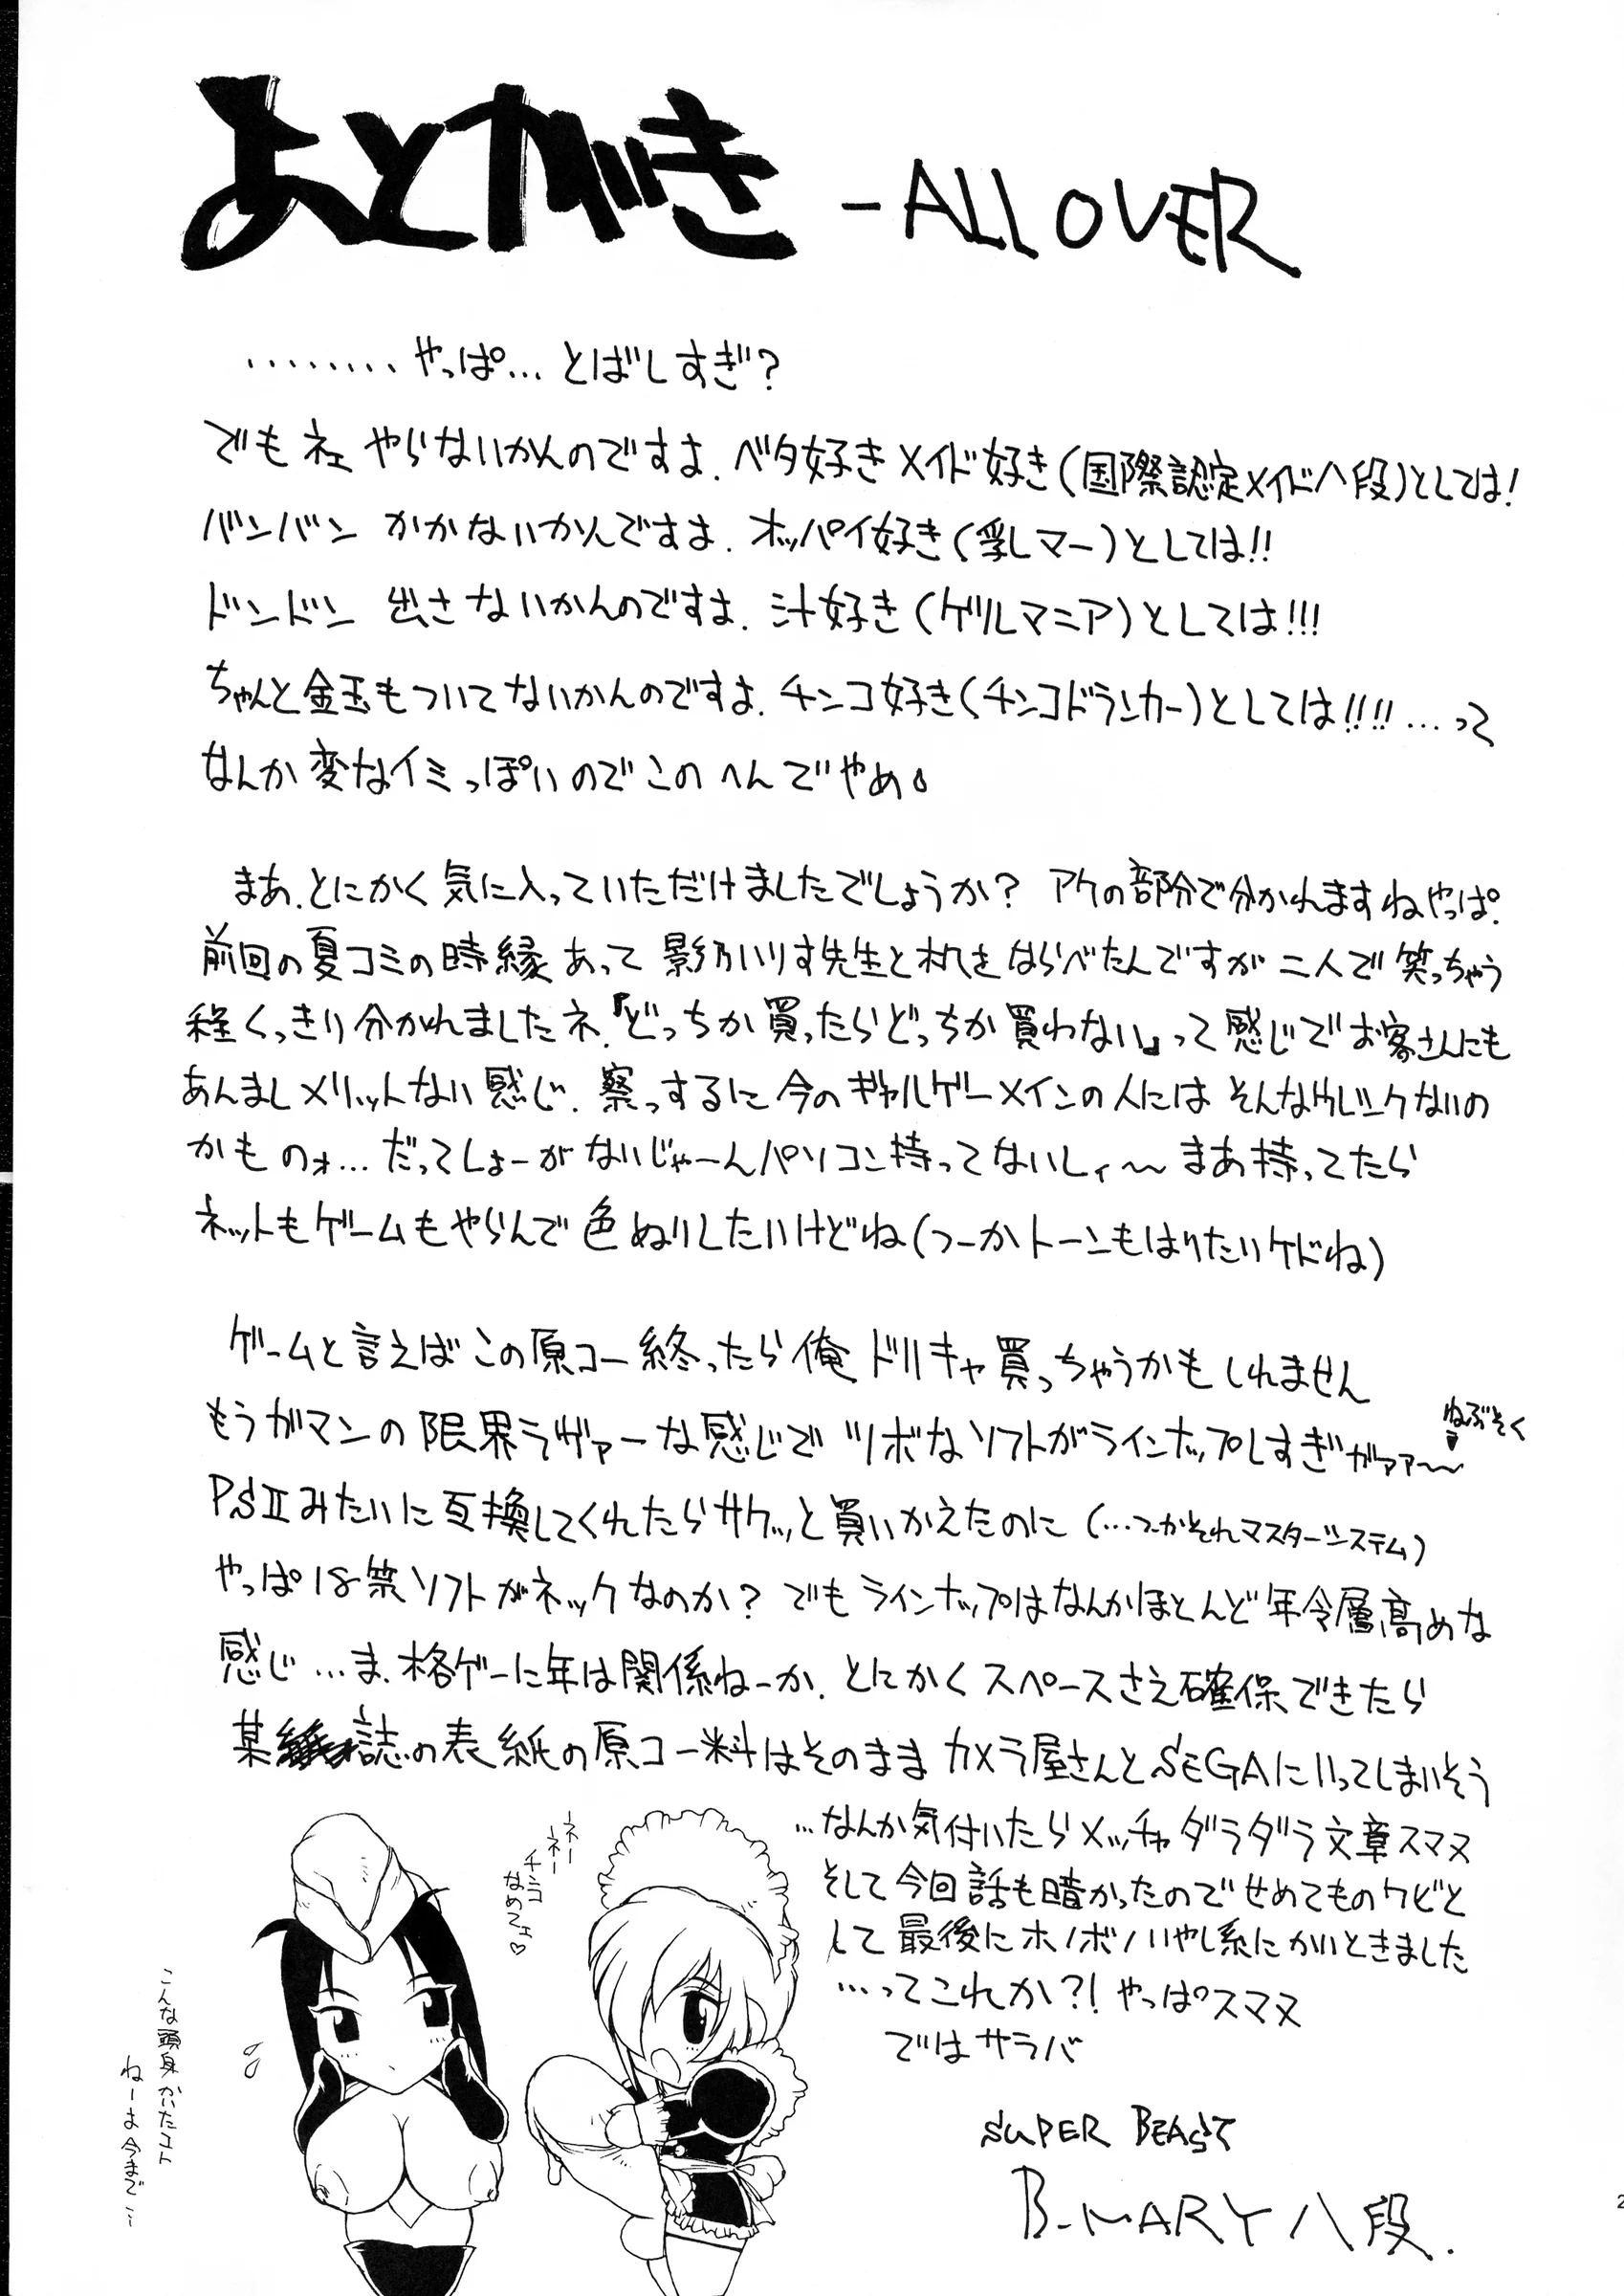 あとがき -ALL OVER
........やっぱ...とばしすぎ?
でもネェ やらないかんのですよ.ベタ好きメイド好き(国際認定メイド八段)としては!
バンバン かかないかんですよ.オッパイ好き(乳レマー)としては!!
ドンドン 出さないかんのですよ.汁好き(ゲルマニア)としては!!!
ちゃんと金玉もついてないかんのですよ.チンコ好き(チンコドランカー)としては!!!!...って
なんか変なイミっぽいのでこのへんでやめ。
まあ.とにかく気に入っていただけましたでしょうか? アケの部分で分かれますねやっぱ.
前回の夏コミの時縁あって 影乃いりす先生と机をならべたんですが二人で笑っちゃう
程くっきり分かれましたネ.『どっちか買ったらどっちか買わない』って感じでお客さんにも
あんましメリットない感じ.察っするに今のギャルゲーメインの人にはそんなウレシクないの
かものォ...だってしょーがないじゃーんパソコン持ってないしィ〜まあ持ってたら
ネットもゲームもやらんで色ぬりしたいけどね(つーかトーンもはりたいケドね)
ゲームと言えばこの原コー終ったら俺ドリキャ買っちゃうかもしれません
もうガマンの限界ラヴァーな感じでツボなソフトがラインナップしすぎガァァ〜
ねぶそく
PSⅡみたいに互換してくれたらサクッと買いかえたのに(...つーかそれマスターシステム)
やっぱ18禁ソフトがネックなのか? でもラインナップはなんかほとんど年令層高めな
感じ...ま.格ゲーに年は関係ねーか.とにかくスペースさえ確保できたら
某誌の表紙の原コー料はそのままカメラ屋さんとSEGAにいってしまいそう
...なんか気付いたらメッチャダラダラ文章スマヌ
そして今回話も暗かったのでせめてものクビと
して最後にホノボノいやし系にかいときました
...ってこれか?! やっぱスマヌ
ではサラバ
SUPER BEAST
B-MARY 八段.
ネーネー
チンコ
なめてょ♡
こんな頭身かいたコト
ねーよ今まで...
2